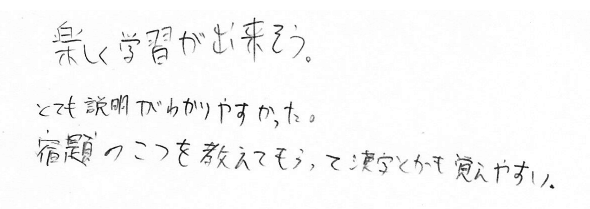 楽しく学習が出来そう。
とても説明がわかりやすかった。
宿題のこつを教えてもらって漢字とかも覚えやすい。